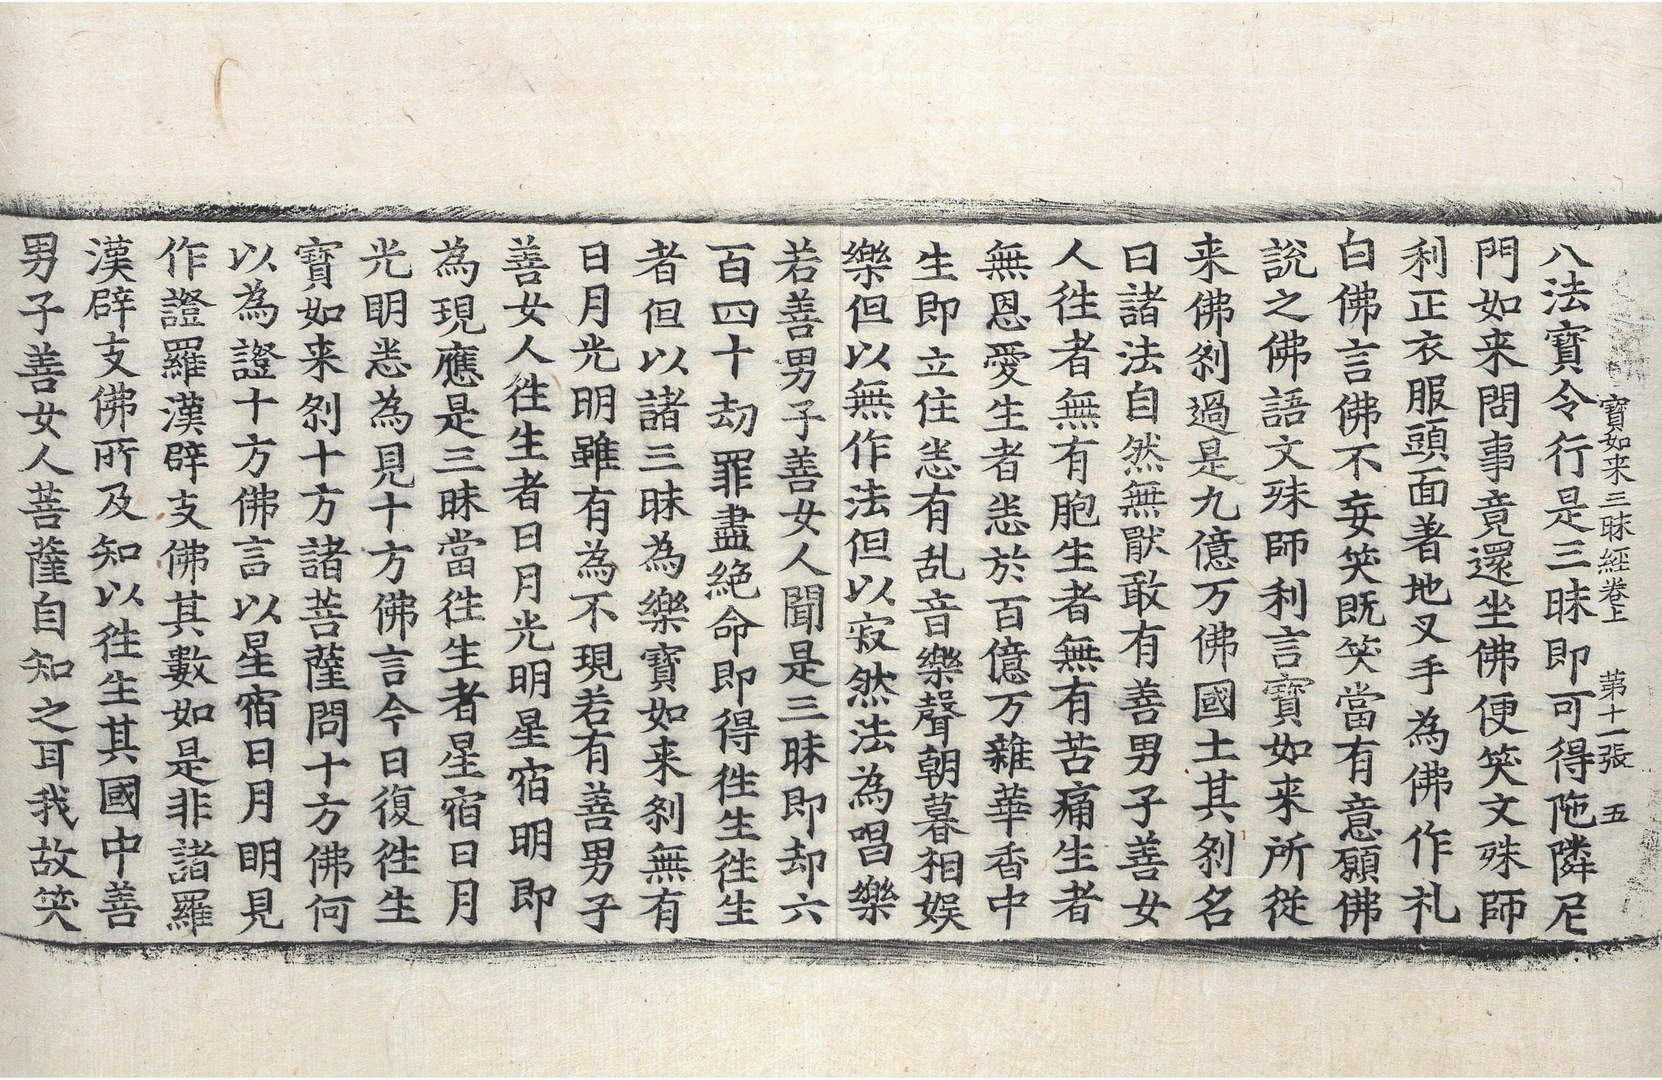 寶如来三昧經卷上 第十一張 五
八法寶令行是三昧即可得陁隣尼
門如来問事竟還坐佛便笑文殊師
利正衣服頭面著地叉手為佛作礼
白佛言佛不妄笑既笑當有意願佛
說之佛語文殊師利言寶如来所從
来佛刹過是九億万佛國土其刹名
曰諸法自然無猒敢有善男子善女
人徃者無有胞生者無有苦痛生者
無恩愛生者悉於百億万雜華香中
生即立住悉有乱音樂聲朝暮相娱
樂但以無作法但以寂然法為唱樂
若善男子善女人聞是三昧即却六
百四十劫罪盡絶命即得徃生徃生
者但以諸三昧為樂寶如来刹無有
日月光明雖有為不現若有善男子
善女人徃生者日月光明星宿明即
為現應是三昧當徃生者星宿日月
光明悉為見十方佛言今日復徃生
寶如来刹十方諸菩薩問十方佛何
以為證十方佛言以星宿日月明見
作證羅漢辟支佛其數如是非諸羅
漢辟支佛所及知以徃生其國中善
男子善女人菩薩自知之耳我故笑